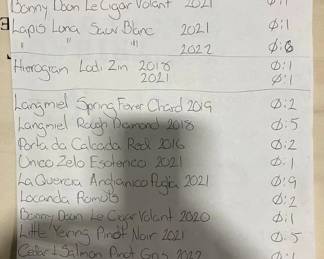 Bonny Doon Le Cigar Volant 2021 Ø:1
Lapis Luna Sauv Blanc 2021 Ø:1
" " 2022 Ø:6
Hierogram Lodi Zin 2018 Ø:1
2021 Ø:1
Langmiel Spring Fever Chard 2019 Ø:2
Langmiel Rough Diamond 2018 Ø:5
Porta da Calcada Red 2016 Ø:2
Unico Zelo Esoterico 2021 Ø:1
La Quercia Anglianico Puglia 2021 Ø:9
Locanda Ø:2
Bonny Doon Le Cigar Volant 2020 Ø:1
Little Yering Pinot Noir 2021 Ø:5
Cedar + Salmon Pinot Gris 2022 Ø:1